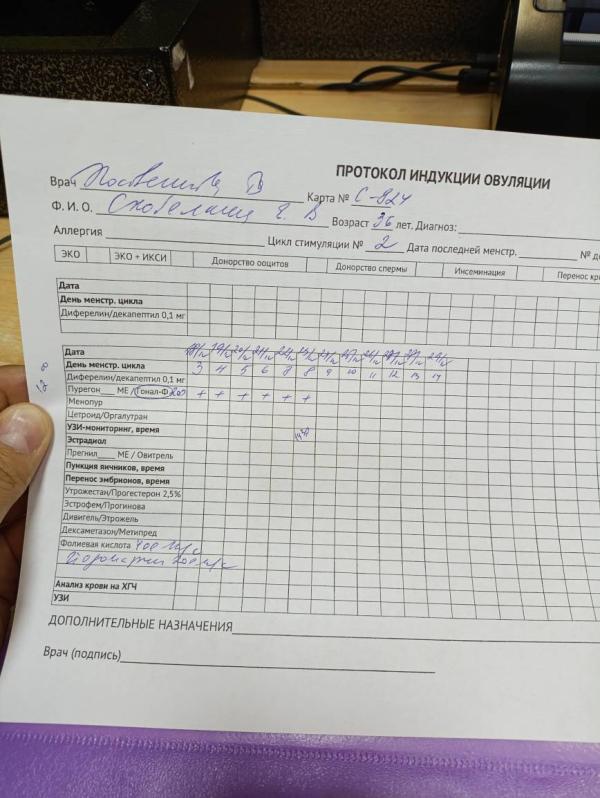 ПРОТОКОЛ ИНДУКЦИИ ОВУЛЯЦИИ
Врач Карта № С-824
Ф. И. О. Е. В Возраст 36 лет. Диагноз:
Аллергия Цикл стимуляции № 2 Дата последней менстр. № до
ЭКО ЭКО + ИКСИ Донорство ооцитов Донорство спермы Инсеминация Перенос кри
Дата
День менстр. цикла
Диферелин/декапептил 0,1 мг
Дата 18/12 19/12 20/12 21/12
День менстр. цикла 3 4 5 6 8 8 9 10 11 12 13 14
12 00
Диферелин/декапептил 0,1 мг
Пурегон МЕ / Гонал-Ф + + + + + +
Менопур
Цетроид/Оргалутран
УЗИ-мониторинг, время
Эстрадиол
Прегнил МЕ / Овитрель
Пункция яичников, время
Перенос эмбрионов, время
Утрожестан/Прогестерон 2,5%
Эстрофем/Прогинова
Дивигель/Этрожель
Дексаметазон/Метипред
Фолиевая кислота 400 мкг
200 мкг
Анализ крови на ХГЧ
УЗИ
ДОПОЛНИТЕЛЬНЫЕ НАЗНАЧЕНИЯ
Врач (подпись)